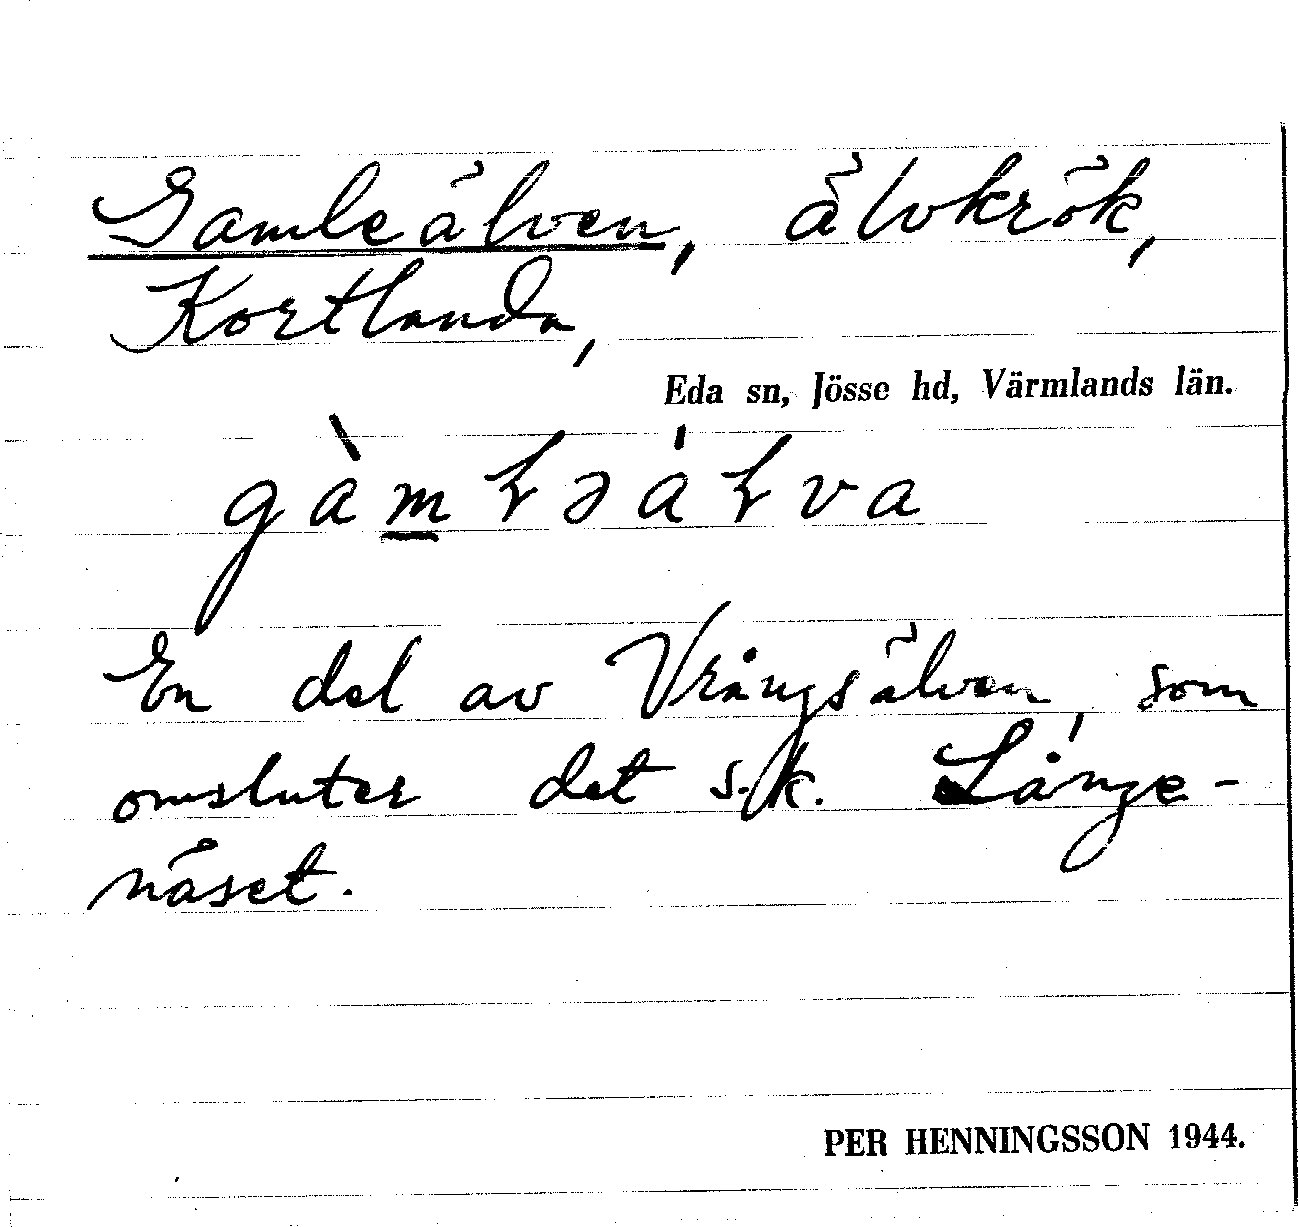 Gamleälven, älvkrök,
Kortlanda,
Eda sn, Jösse hd, Värmlands län.
gàm̲ɫəáɫva
En del av Vrångsälven, som
omsluter det s.k. Långe-
näset.
PER HENNINGSSON 1944.